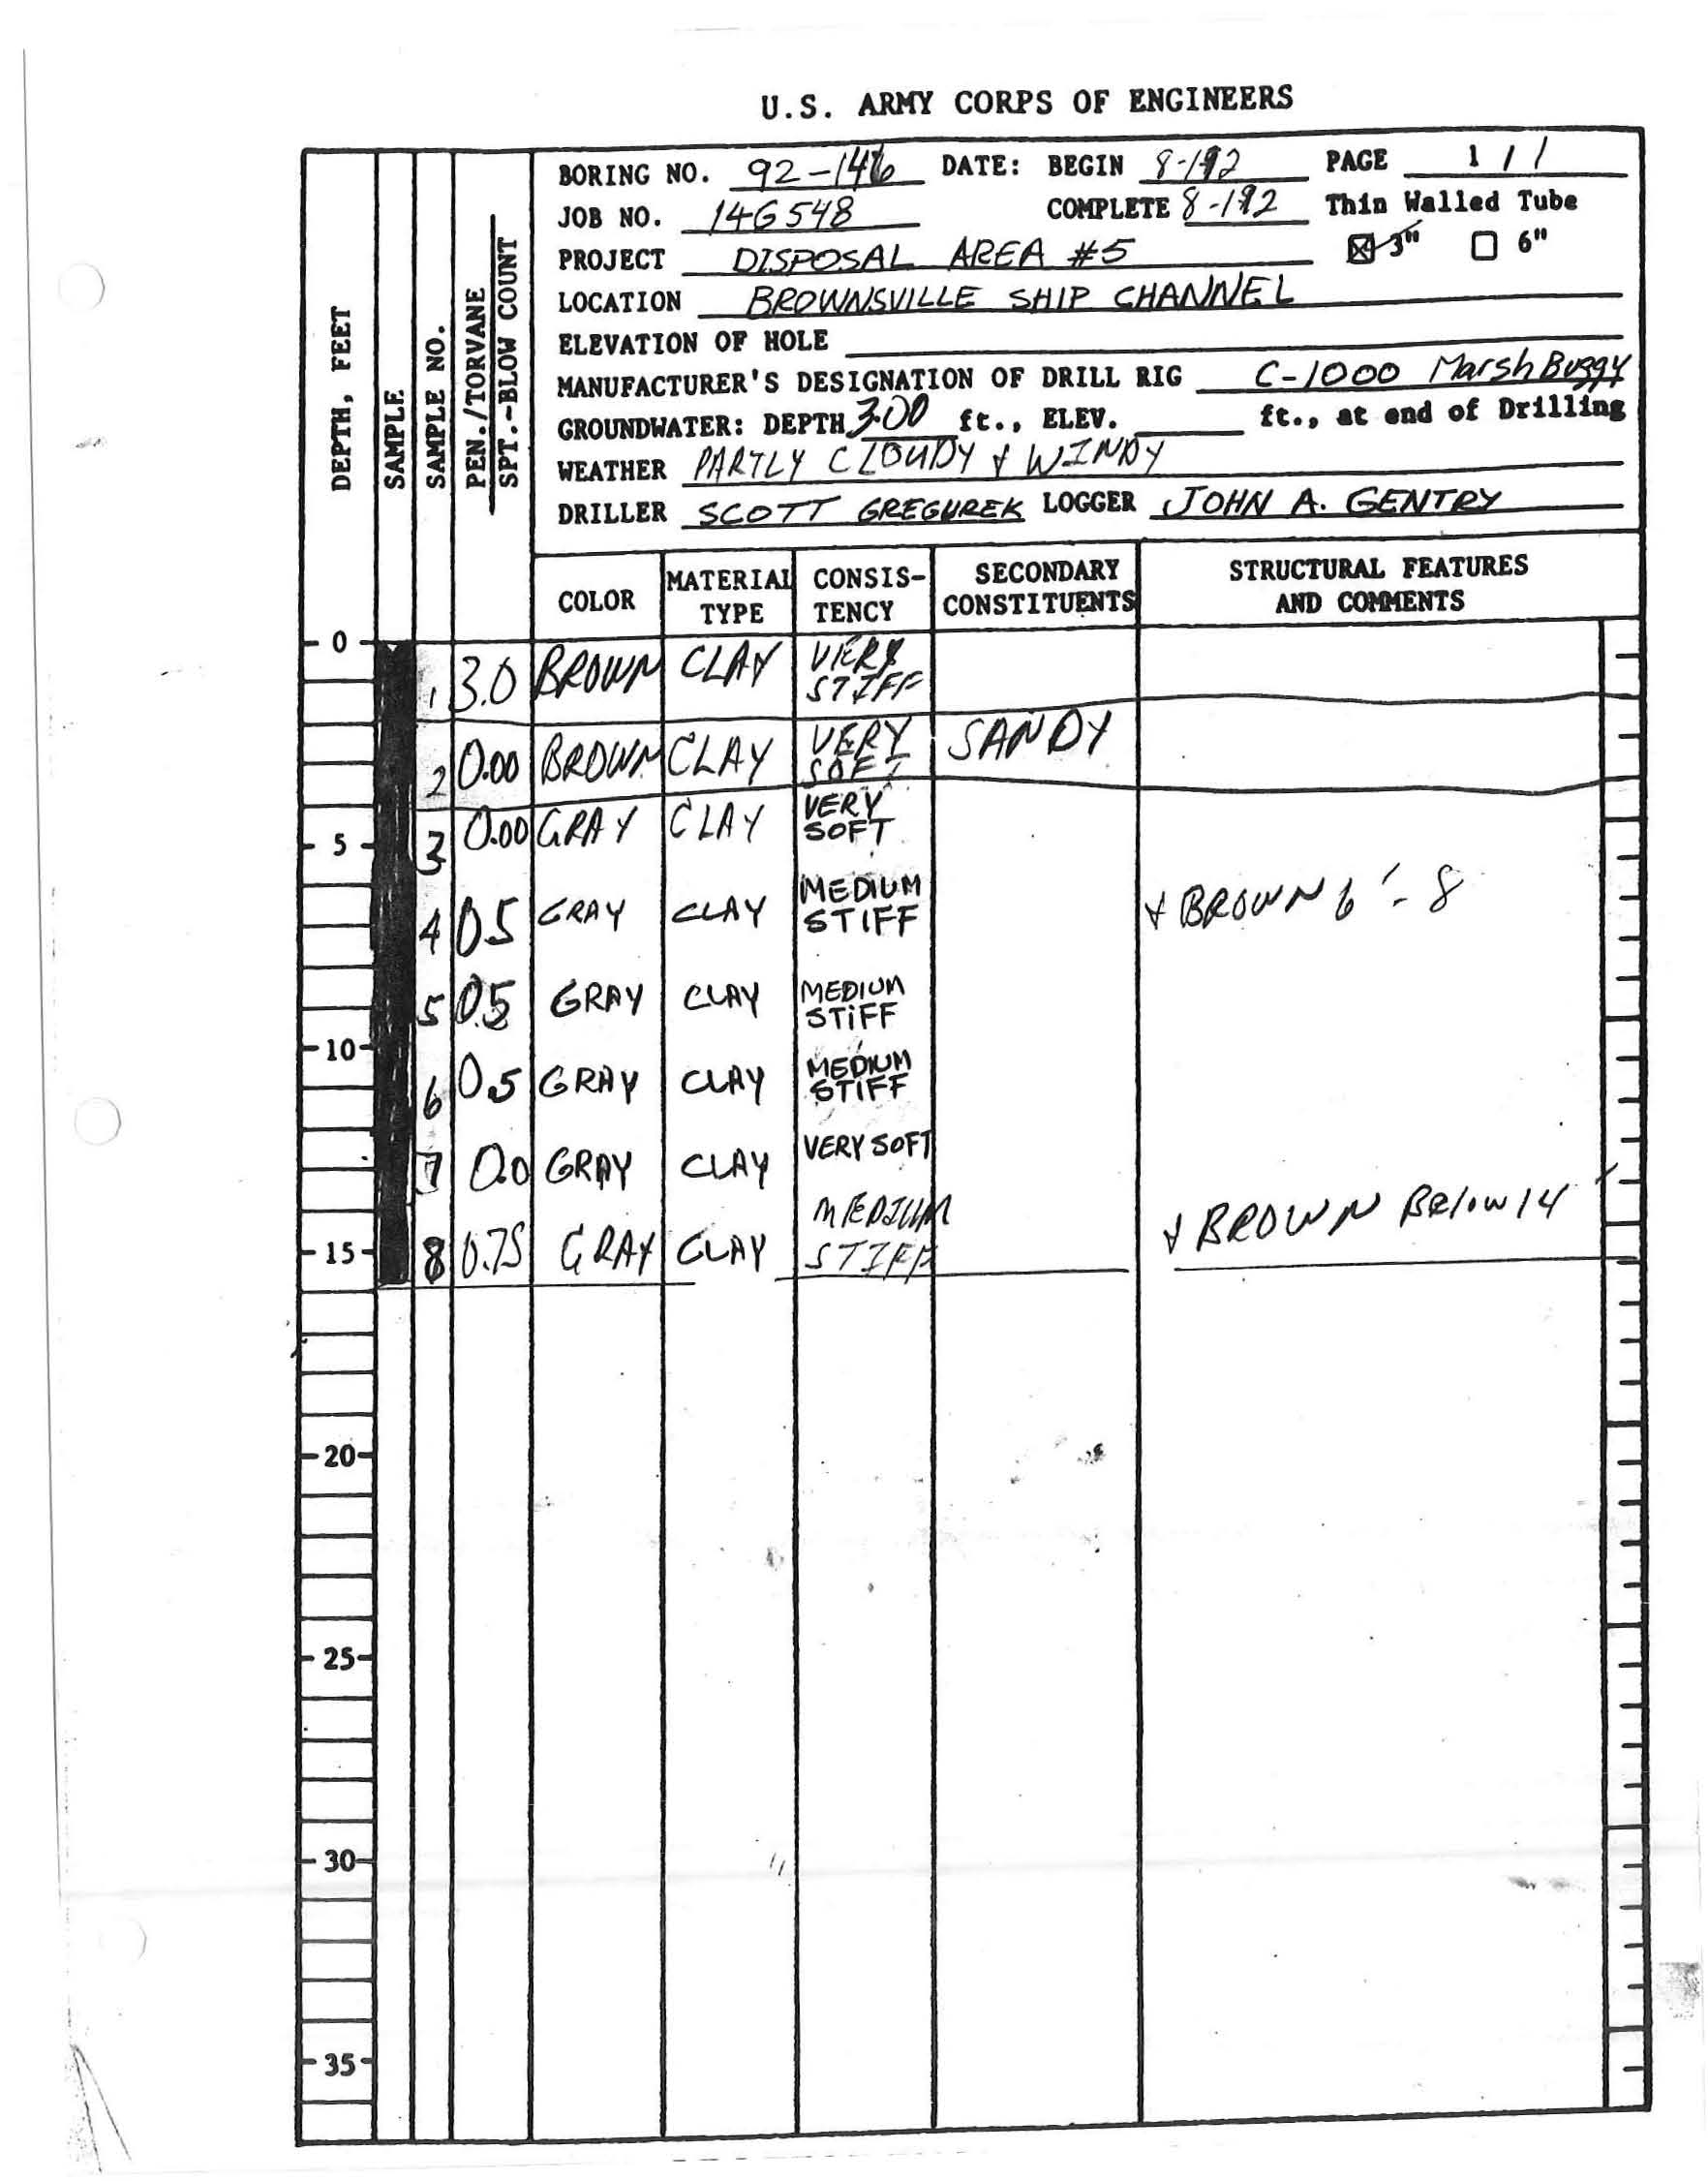 U.S. ARMY CORPS OF ENGINEERS
BORING NO. 92-146 DATE: BEGIN 8-1-92 PAGE 1 / 1
JOB NO. 14G548 COMPLETE 8-1-92 Thin Walled Tube
PROJECT DISPOSAL AREA #5 ☒ 3" ☐ 6"
LOCATION BROWNSVILLE SHIP CHANNEL
ELEVATION OF HOLE
MANUFACTURER'S DESIGNATION OF DRILL RIG C-1000 Marsh Buggy
GROUNDWATER: DEPTH 3.00 ft., ELEV. ft., at end of Drilling
WEATHER PARTLY CLOUDY & WINDY
DRILLER SCOTT GREGUREK LOGGER JOHN A. GENTRY
DEPTH, FEET
SAMPLE
SAMPLE NO.
PEN./TORVANE
SPT.-BLOW COUNT
COLOR
MATERIAL TYPE
CONSIS-TENCY
SECONDARY CONSTITUENTS
STRUCTURAL FEATURES AND COMMENTS
0
1 3.0 BROWN CLAY VERY STIFF
2 0.00 BROWN CLAY VERY SOFT SANDY
5 3 0.00 GRAY CLAY VERY SOFT
4 0.5 GRAY CLAY MEDIUM STIFF & BROWN 6' - 8
5 0.5 GRAY CLAY MEDIUM STIFF
10
6 0.5 GRAY CLAY MEDIUM STIFF
7 0.0 GRAY CLAY VERY SOFT
15 8 0.75 GRAY CLAY MEDIUM STIFF & BROWN Below 14'
20
25
30
35